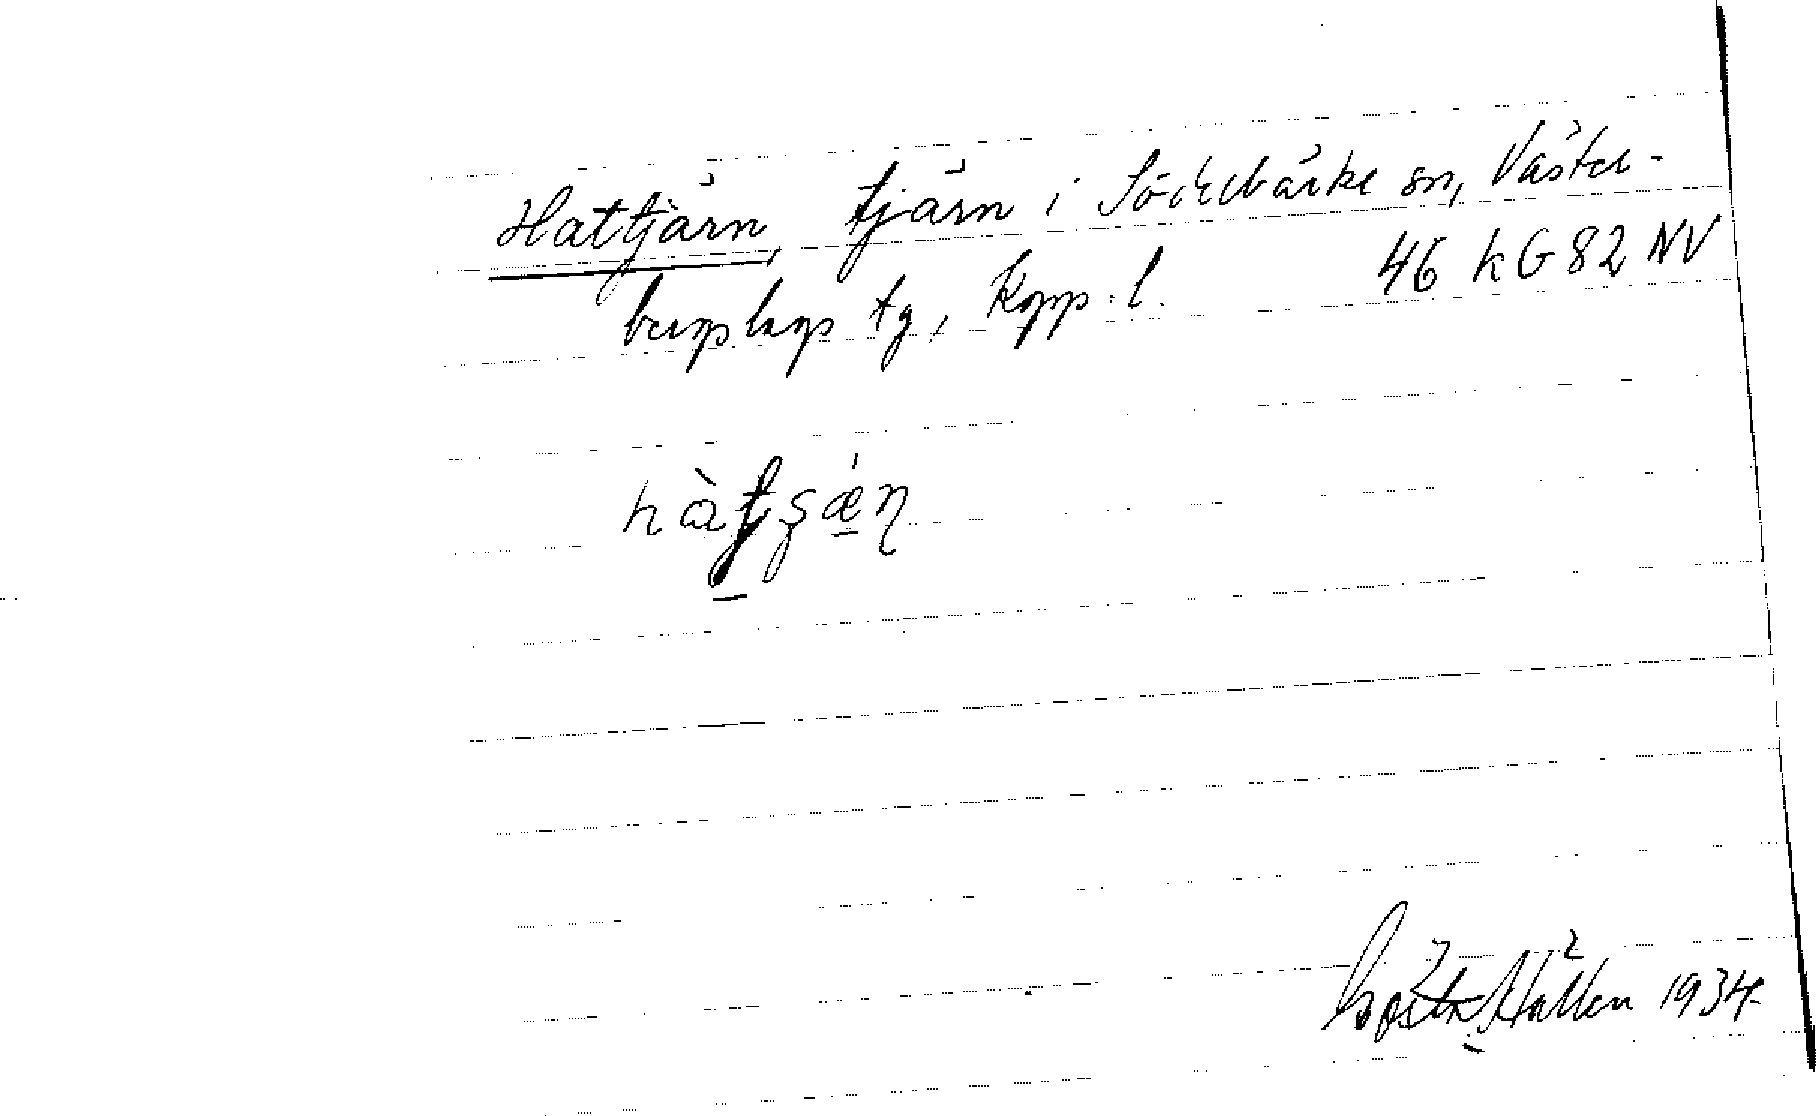 Hattjärn, tjärn i Söderbärke sn, Väster-
bergslags tg, Kopp. l. 46 kG 82 NV
Gösta Hallén 1934